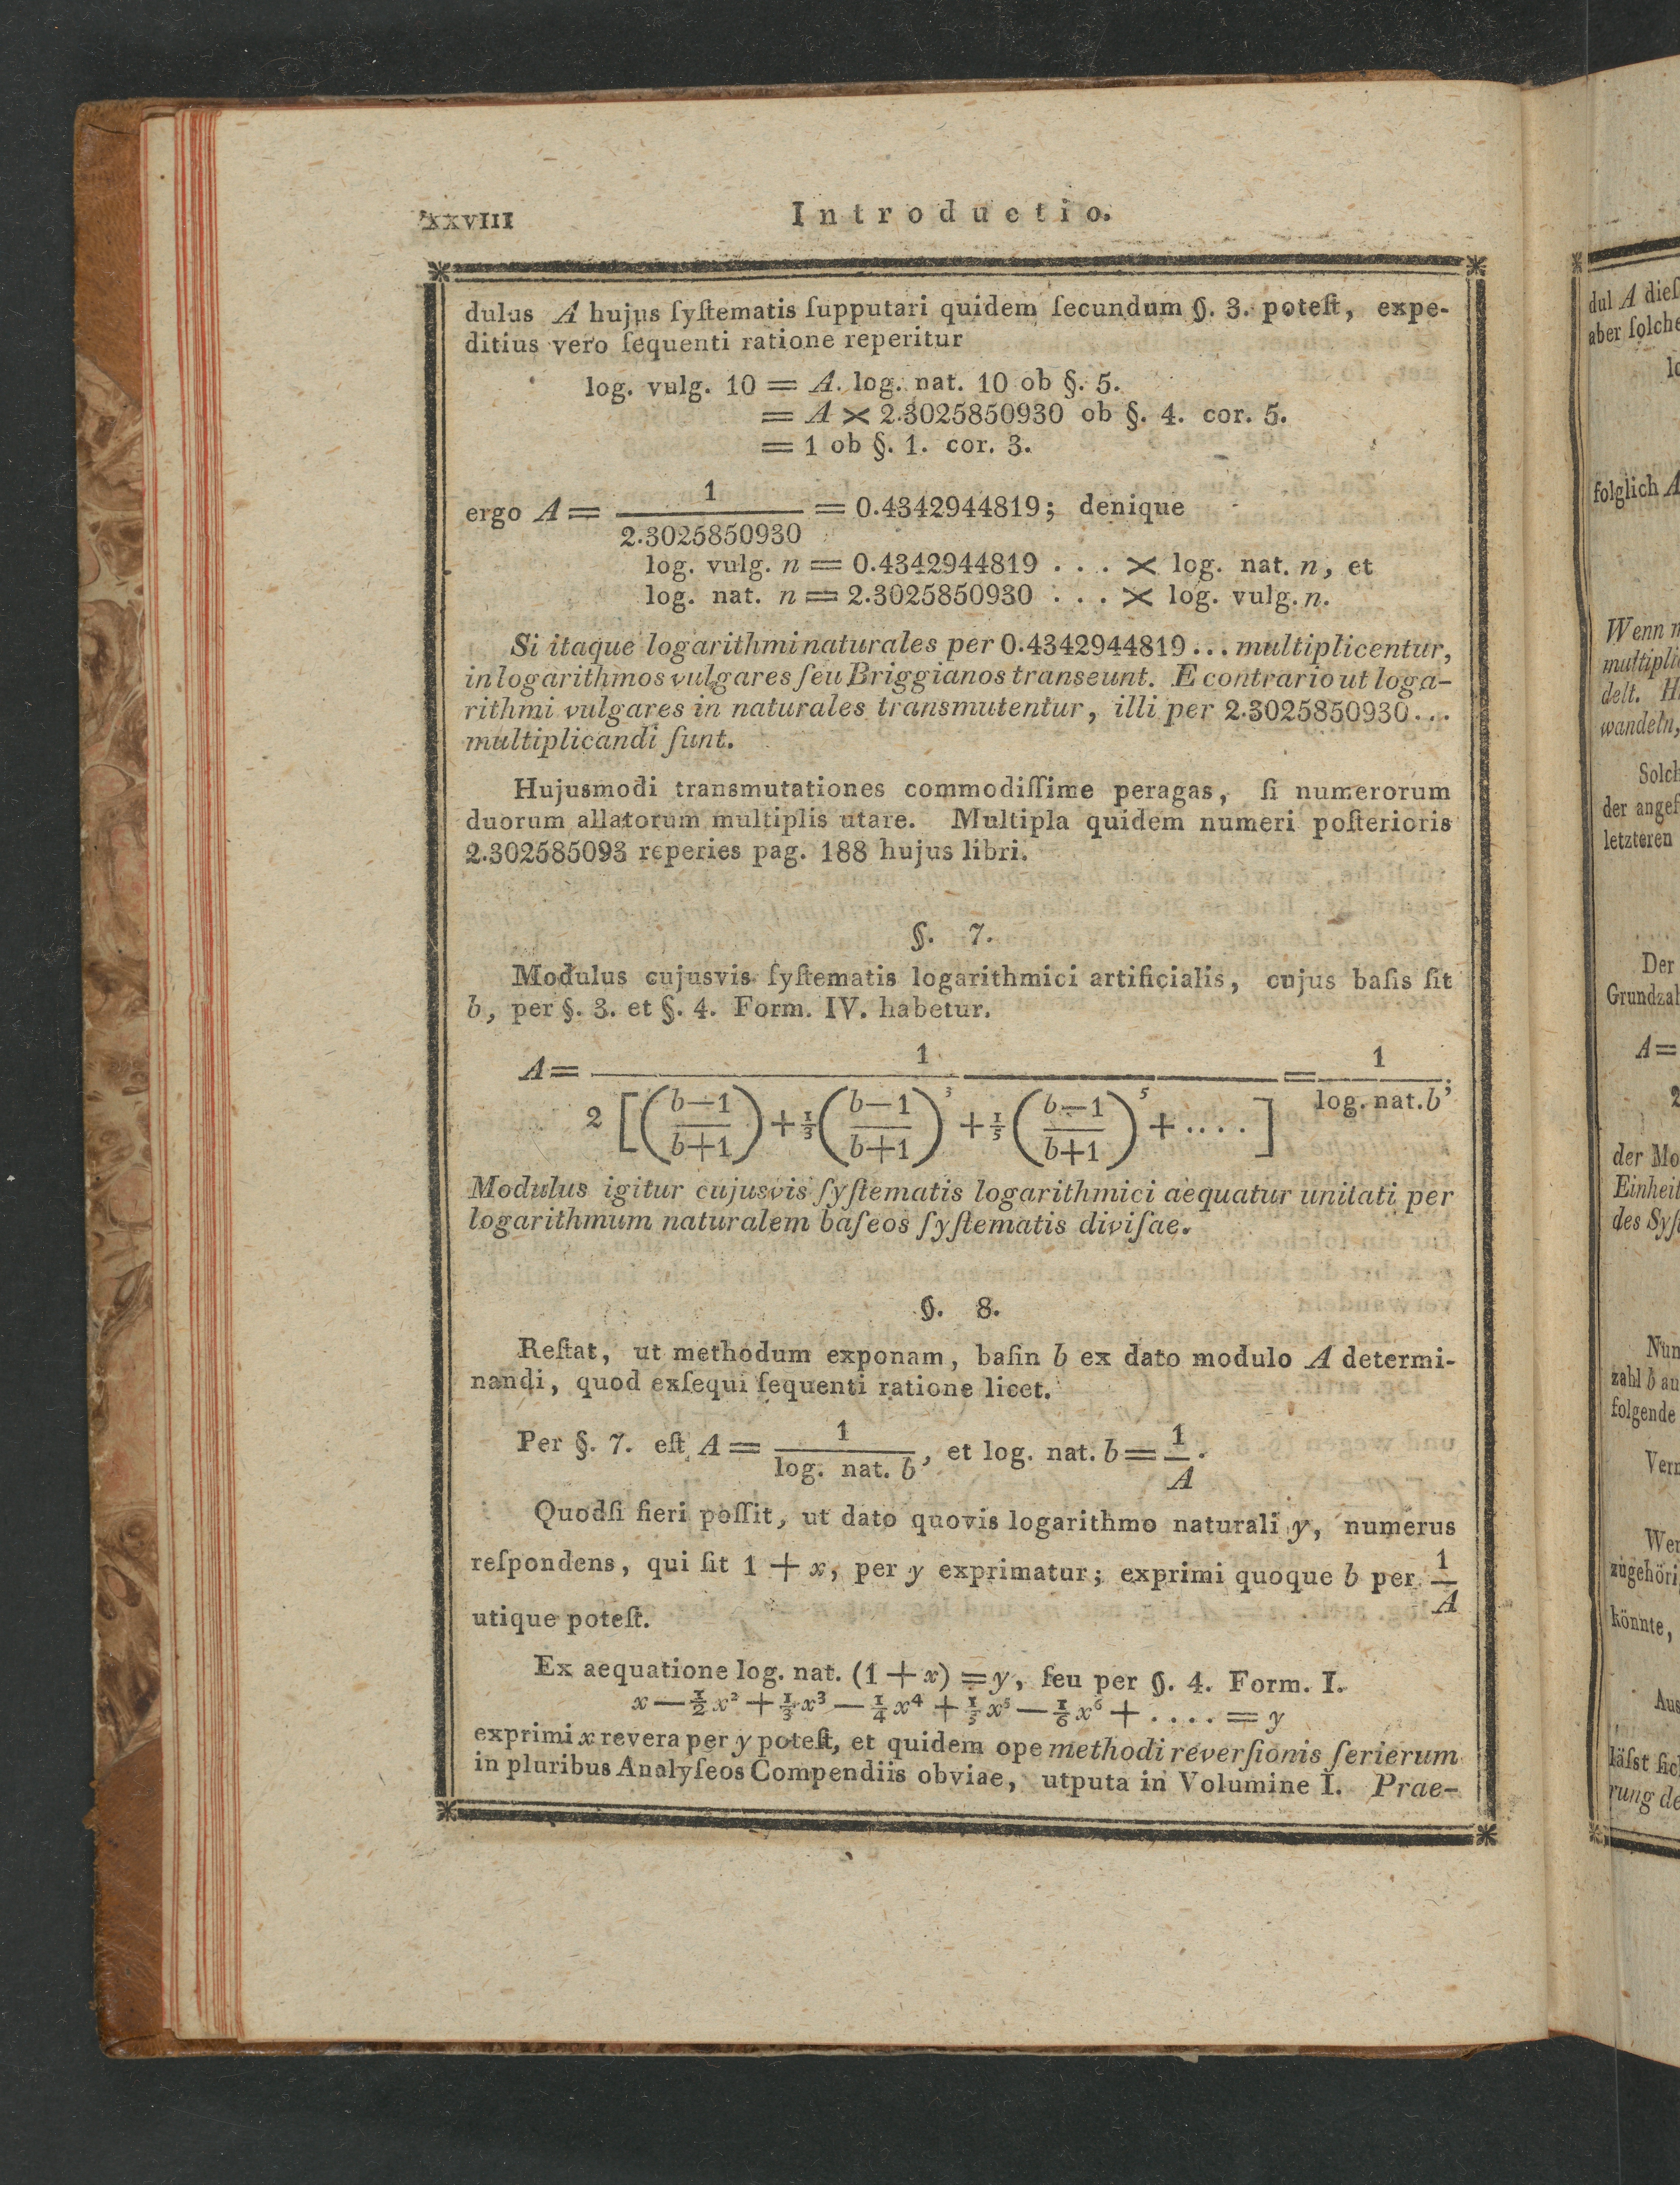 XXVIII Introductio.
dulus A hujus ſyſtematis ſupputari quidem ſecundum §. 3. poteſt, expe-
ditius vero ſequenti ratione reperitur
log. vulg. 10 = A. log. nat. 10 ob §. 5.
= A × 2.3025850930 ob §. 4. cor. 5.
= 1 ob §. 1. cor. 3.
ergo A = 1/2.3025850930 = 0.4342944819; denique
log. vulg. n = 0.4342944819 . . . × log. nat. n, et
log. nat. n = 2.3025850930 . . . × log. vulg. n.
Si itaque logarithmi naturales per 0.4342944819 ... multiplicentur,
in logarithmos vulgares ſeu Briggianos transeunt. E contrario ut loga-
rithmi vulgares in naturales transmutentur, illi per 2.3025850930...
multiplicandi ſunt.
Hujusmodi transmutationes commodiſſime peragas, ſi numerorum
duorum allatorum multiplis utare. Multipla quidem numeri poſterioris
2.302585093 reperies pag. 188 hujus libri.
§. 7.
Modulus cujusvis ſyſtematis logarithmici artificialis, cujus baſis ſit
b, per §. 3. et §. 4. Form. IV. habetur.
A = 1/2[((b—1)/(b+1)) + ⅓((b—1)/(b+1))³ + ⅕((b—1)/(b+1))⁵ + ....] = 1/log. nat. b;
Modulus igitur cujusvis ſyſtematis logarithmici aequatur unitati per
logarithmum naturalem baſeos ſyſtematis diviſae.
§. 8.
Reſtat, ut methodum exponam, baſin b ex dato modulo A determi-
nandi, quod exſequi ſequenti ratione licet.
Per §. 7. eſt A = 1/log. nat. b, et log. nat. b = 1/A.
Quodſi fieri poſſit, ut dato quovis logarithmo naturali y, numerus
reſpondens, qui ſit 1 + x, per y exprimatur; exprimi quoque b per 1/A
utique poteſt.
Ex aequatione log. nat. (1 + x) = y, ſeu per §. 4. Form. I.
x — ½ x² + ⅓ x³ — ¼ x⁴ + ⅕ x⁵ — ⅙ x⁶ + . . . . = y
exprimi x revera per y poteſt, et quidem ope methodi reverſionis ſerierum
in pluribus Analyſeos Compendiis obviae, utputa in Volumine I. Prae-
dul A dieſ
aber ſolche
lo
folglich A
Wenn n
multipli
delt. H
wandeln,
Solch
der angef
letzteren
Der
Grundzah
A =
2
der Mo
Einheit
des Syſt
Nun
zahl b au
folgende
Verm
Wen
zugehöri
könnte,
Aus
läſst ſich
rung de